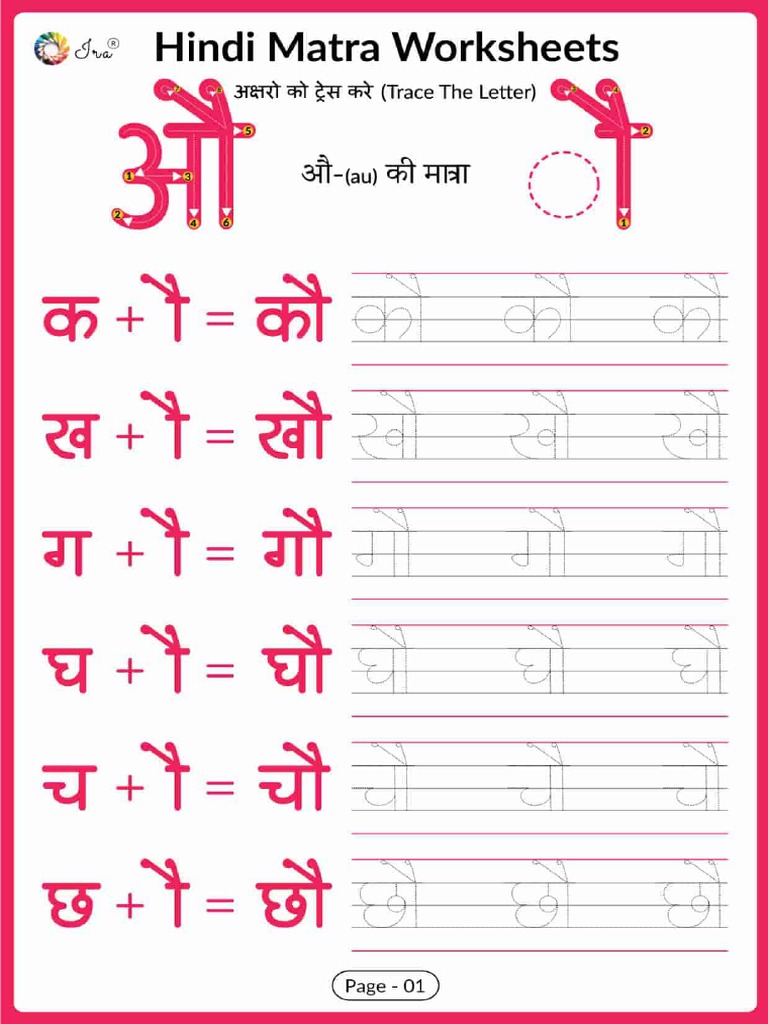 Ira®
Hindi Matra Worksheets
अक्षरो को ट्रेस करे (Trace The Letter)
औ
औ-(au) की मात्रा
ौ
क + ौ = कौ कौ कौ कौ
ख + ौ = खौ खौ खौ खौ
ग + ौ = गौ गौ गौ गौ
घ + ौ = घौ घौ घौ घौ
च + ौ = चौ चौ चौ चौ
छ + ौ = छौ छौ छौ छौ
Page - 01